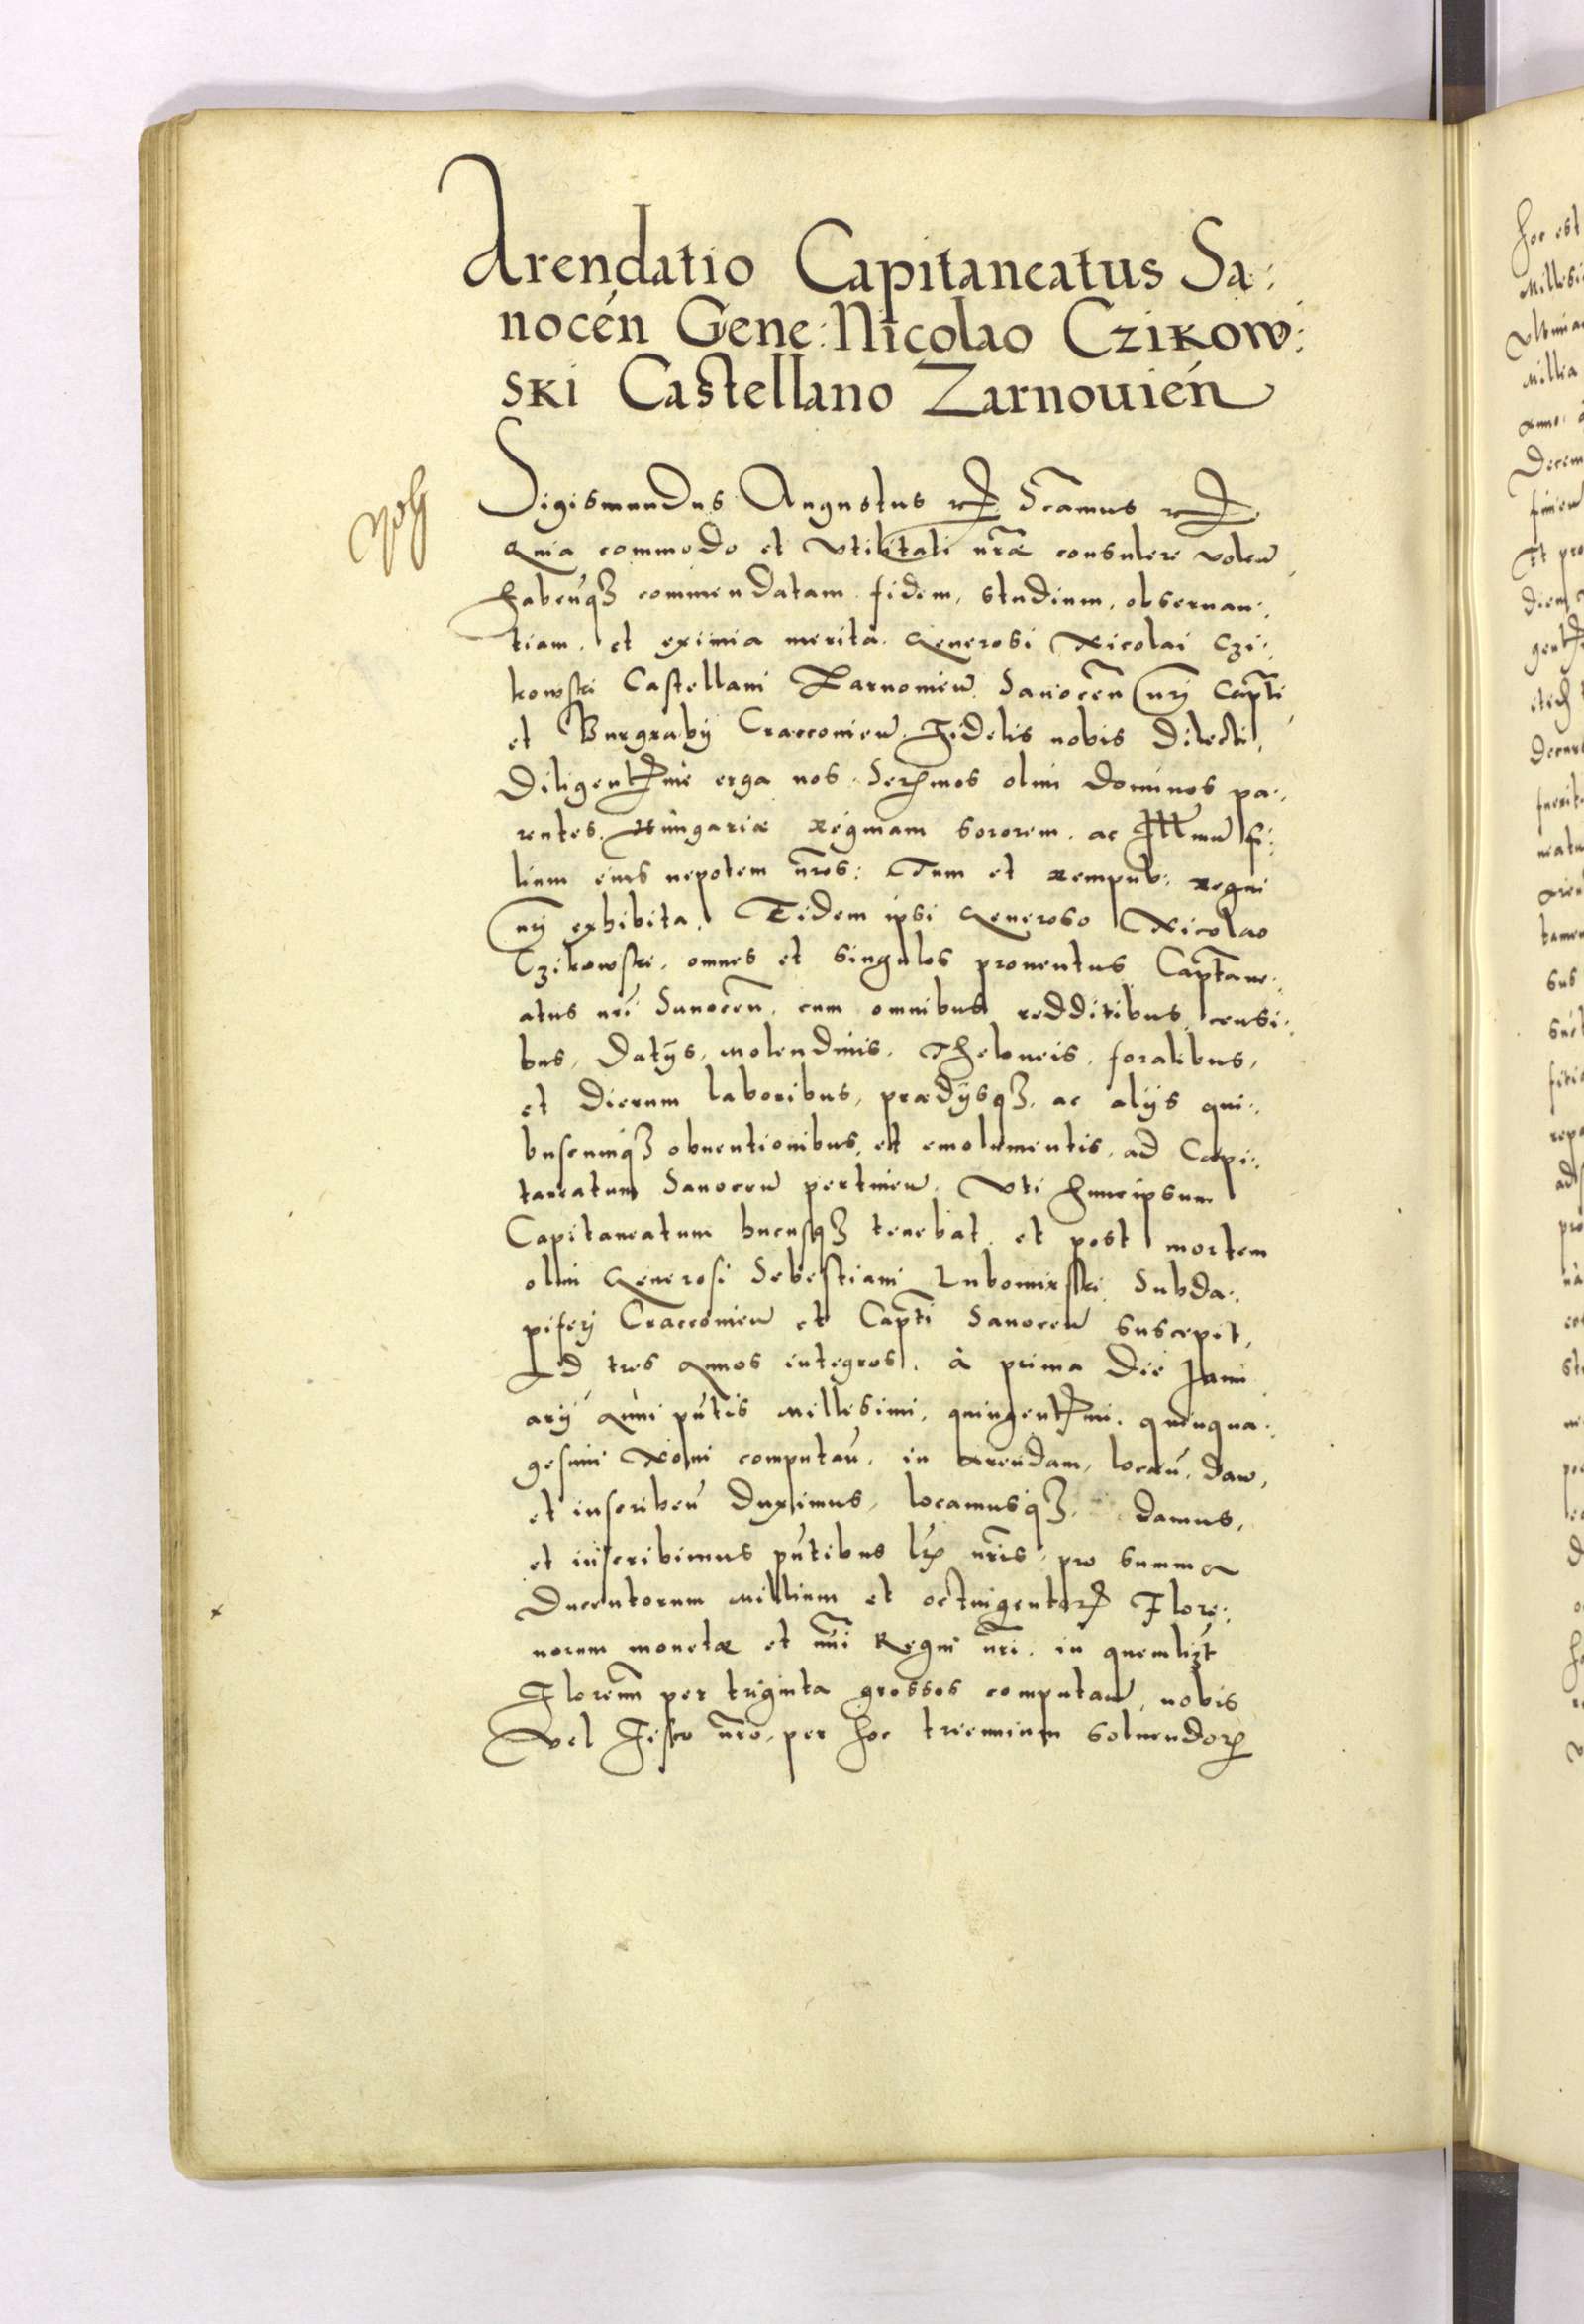 Arendatio Capitaneatus Sa:
nocén Gene: Nicolao Czikow:
ski Castellano Zarnouién
Sigismundus Augustus rex Scamus rex
Quia commodo et Vtilitati nrae consulere volen
habenqz commendatam fidem, studium, obseruan:
tiam, et eximia merita Generosi Nicolai Czi:
kowski Castellani Zarnouien Sanocen nrj Capti
et Burgrabÿ Cracouien, Fidelis nobis dilecti,
Diligentme erga nos Sermos olim dominos pa:
rentes, Hungariae Reginam sororem, ac Illmu fi:
lium eius nepotem nros: Tum et rempub: regni
nrj exhibita, Eidem ipsi Generoso Nicolao
Czikowski, omnes et singulos prouentus Captane:
atus nri Sanocen, cum omnibus redditibus, censi:
bus, datÿs, molendinis, Theloneis, foralibus,
et dierum laboribus, praedÿsqz, ac alÿs qui:
buscunqz obuentionibus, et emolumentis, ad Capi:
taneatum Sanocen pertinen, Vti hunc ipsum
Capitaneatum hucusqz tenebat, et post mortem
olim Generosi Sebestiani Lubomirski Subda:
piferj Cracouien et Capti Sanocen suscepit,
Ad tres annos integros, à prima die Janu
arÿ anni pntis millesimi, quingentmi, quinqua:
gesimi Noni computan, in arendam, locan, dan,
et inscriben duximus, locamusqz, damus,
et inscribimus pntibus lris nris, pro summa
Ducentorum millium et octuigentor Flore:
norum monetae et nui Regni nri, in quemlizt
Florenu per triginta grossos computan, nobis
Vel Fisco nro, per hoc triennium soluendor
hoc est
Millesi
millia
Decem
Et pro